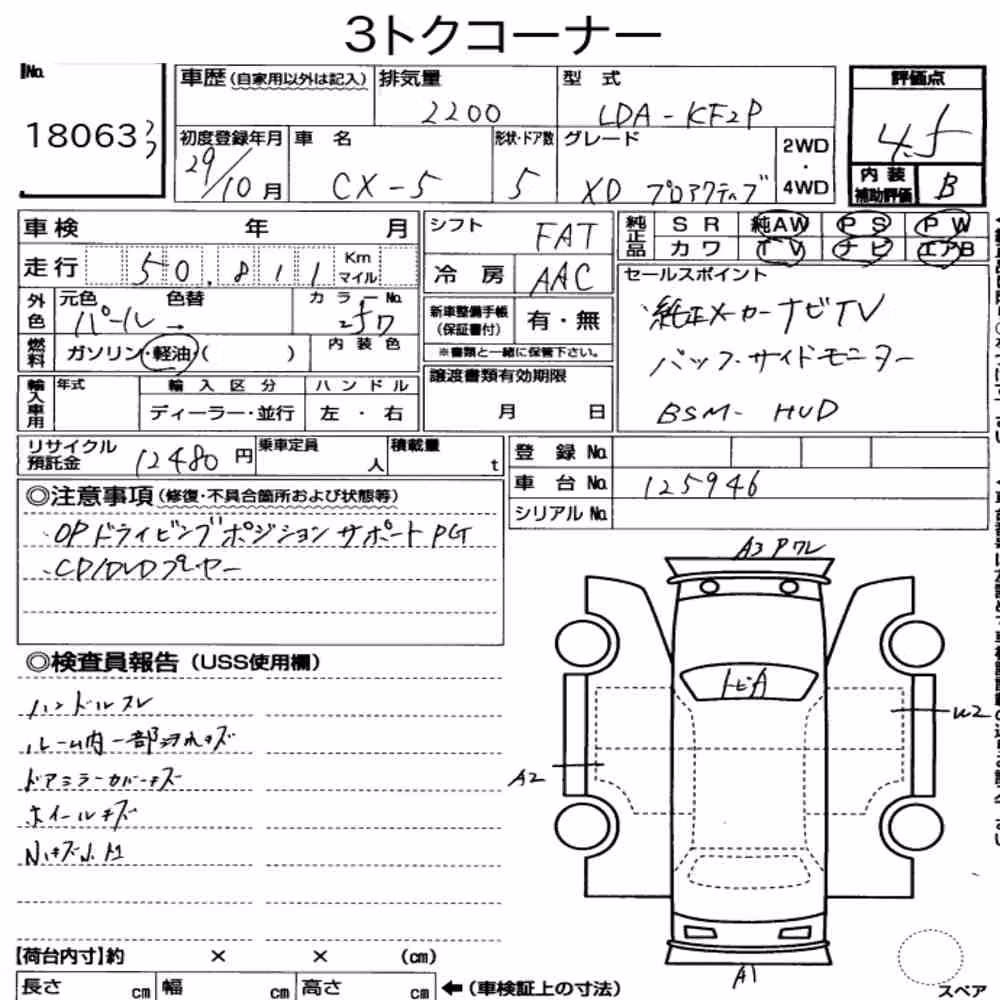 3トクコーナー
No.
18063
車歴(自家用以外は記入) 排気量 型 式 評価点
2200 LDA-KF2P 4.5
初度登録年月 車 名 形状・ドア数 グレード 2WD・4WD
29/10月 CX-5 5 XD プロアクティブ
内装補助評価 B
車検 年 月 シフト FAT 純正品 SR 純AW PS PW
カワ TV ナビ エアB
走行 50,811 Km マイル 冷 房 AAC セールスポイント
外色 元色 色替 カラーNo.
パール→ 25D
新車整備手帳(保証書付) 有・無
・純正メーカーナビTV
燃料 ガソリン・軽油・( ) 内装色 ※書類と一緒に保管下さい。
バック・サイドモニター
輸入車用 年式 輸入区分 ハンドル 譲渡書類有効期限
ディーラー・並行 左・右 月 日
BSM- HUD
リサイクル預託金 12480円 乗車定員 人 積載量 t 登 録 No.
車 台 No. 125946
シリアル No.
◎注意事項(修復・不具合箇所および状態等)
・OPドライビングポジションサポートPKG
・CD/DVDプレーヤー
A3 Pワレ
◎検査員報告(USS使用欄)
トビA
ハンドルスレ
W2
ルーム内一部汚れキズ
ドアミラーカバーキズ
A2
ホイールキズ
【荷台内寸】約 × × (cm)
長さ cm 幅 cm 高さ cm ←(車検証上の寸法)
A1
スペア